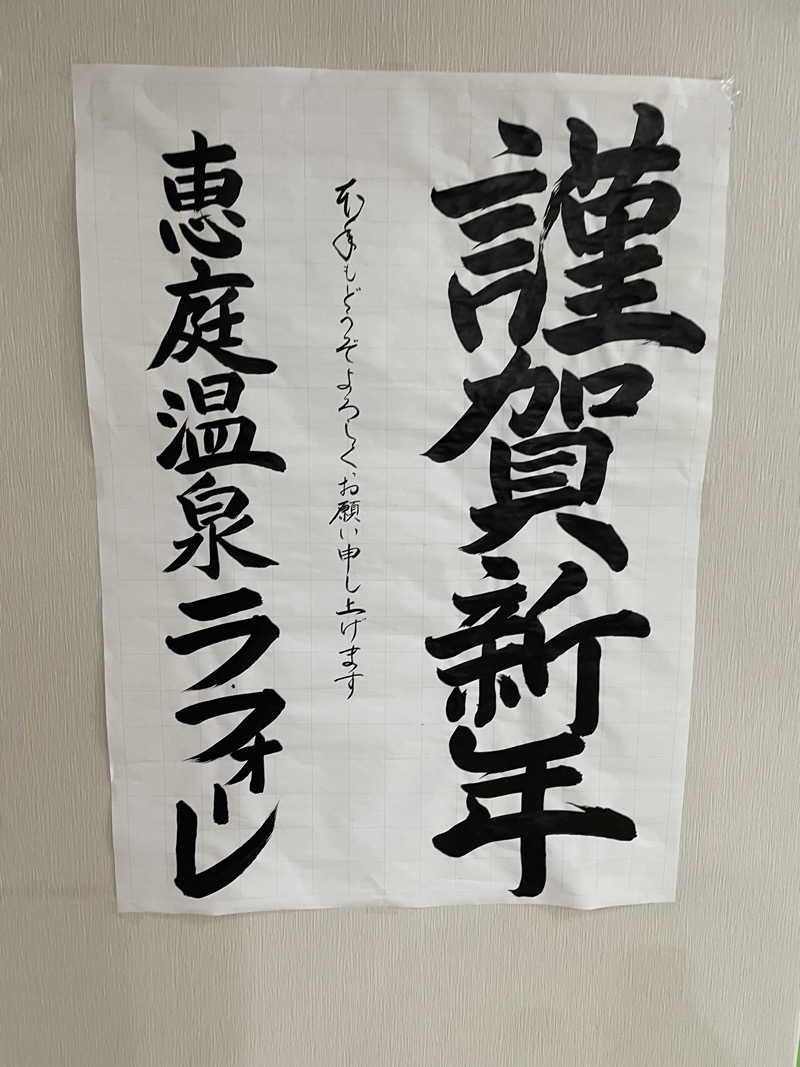 謹賀新年
本年もどうぞよろしくお願い申し上げます
恵庭温泉ラ・フォーレ